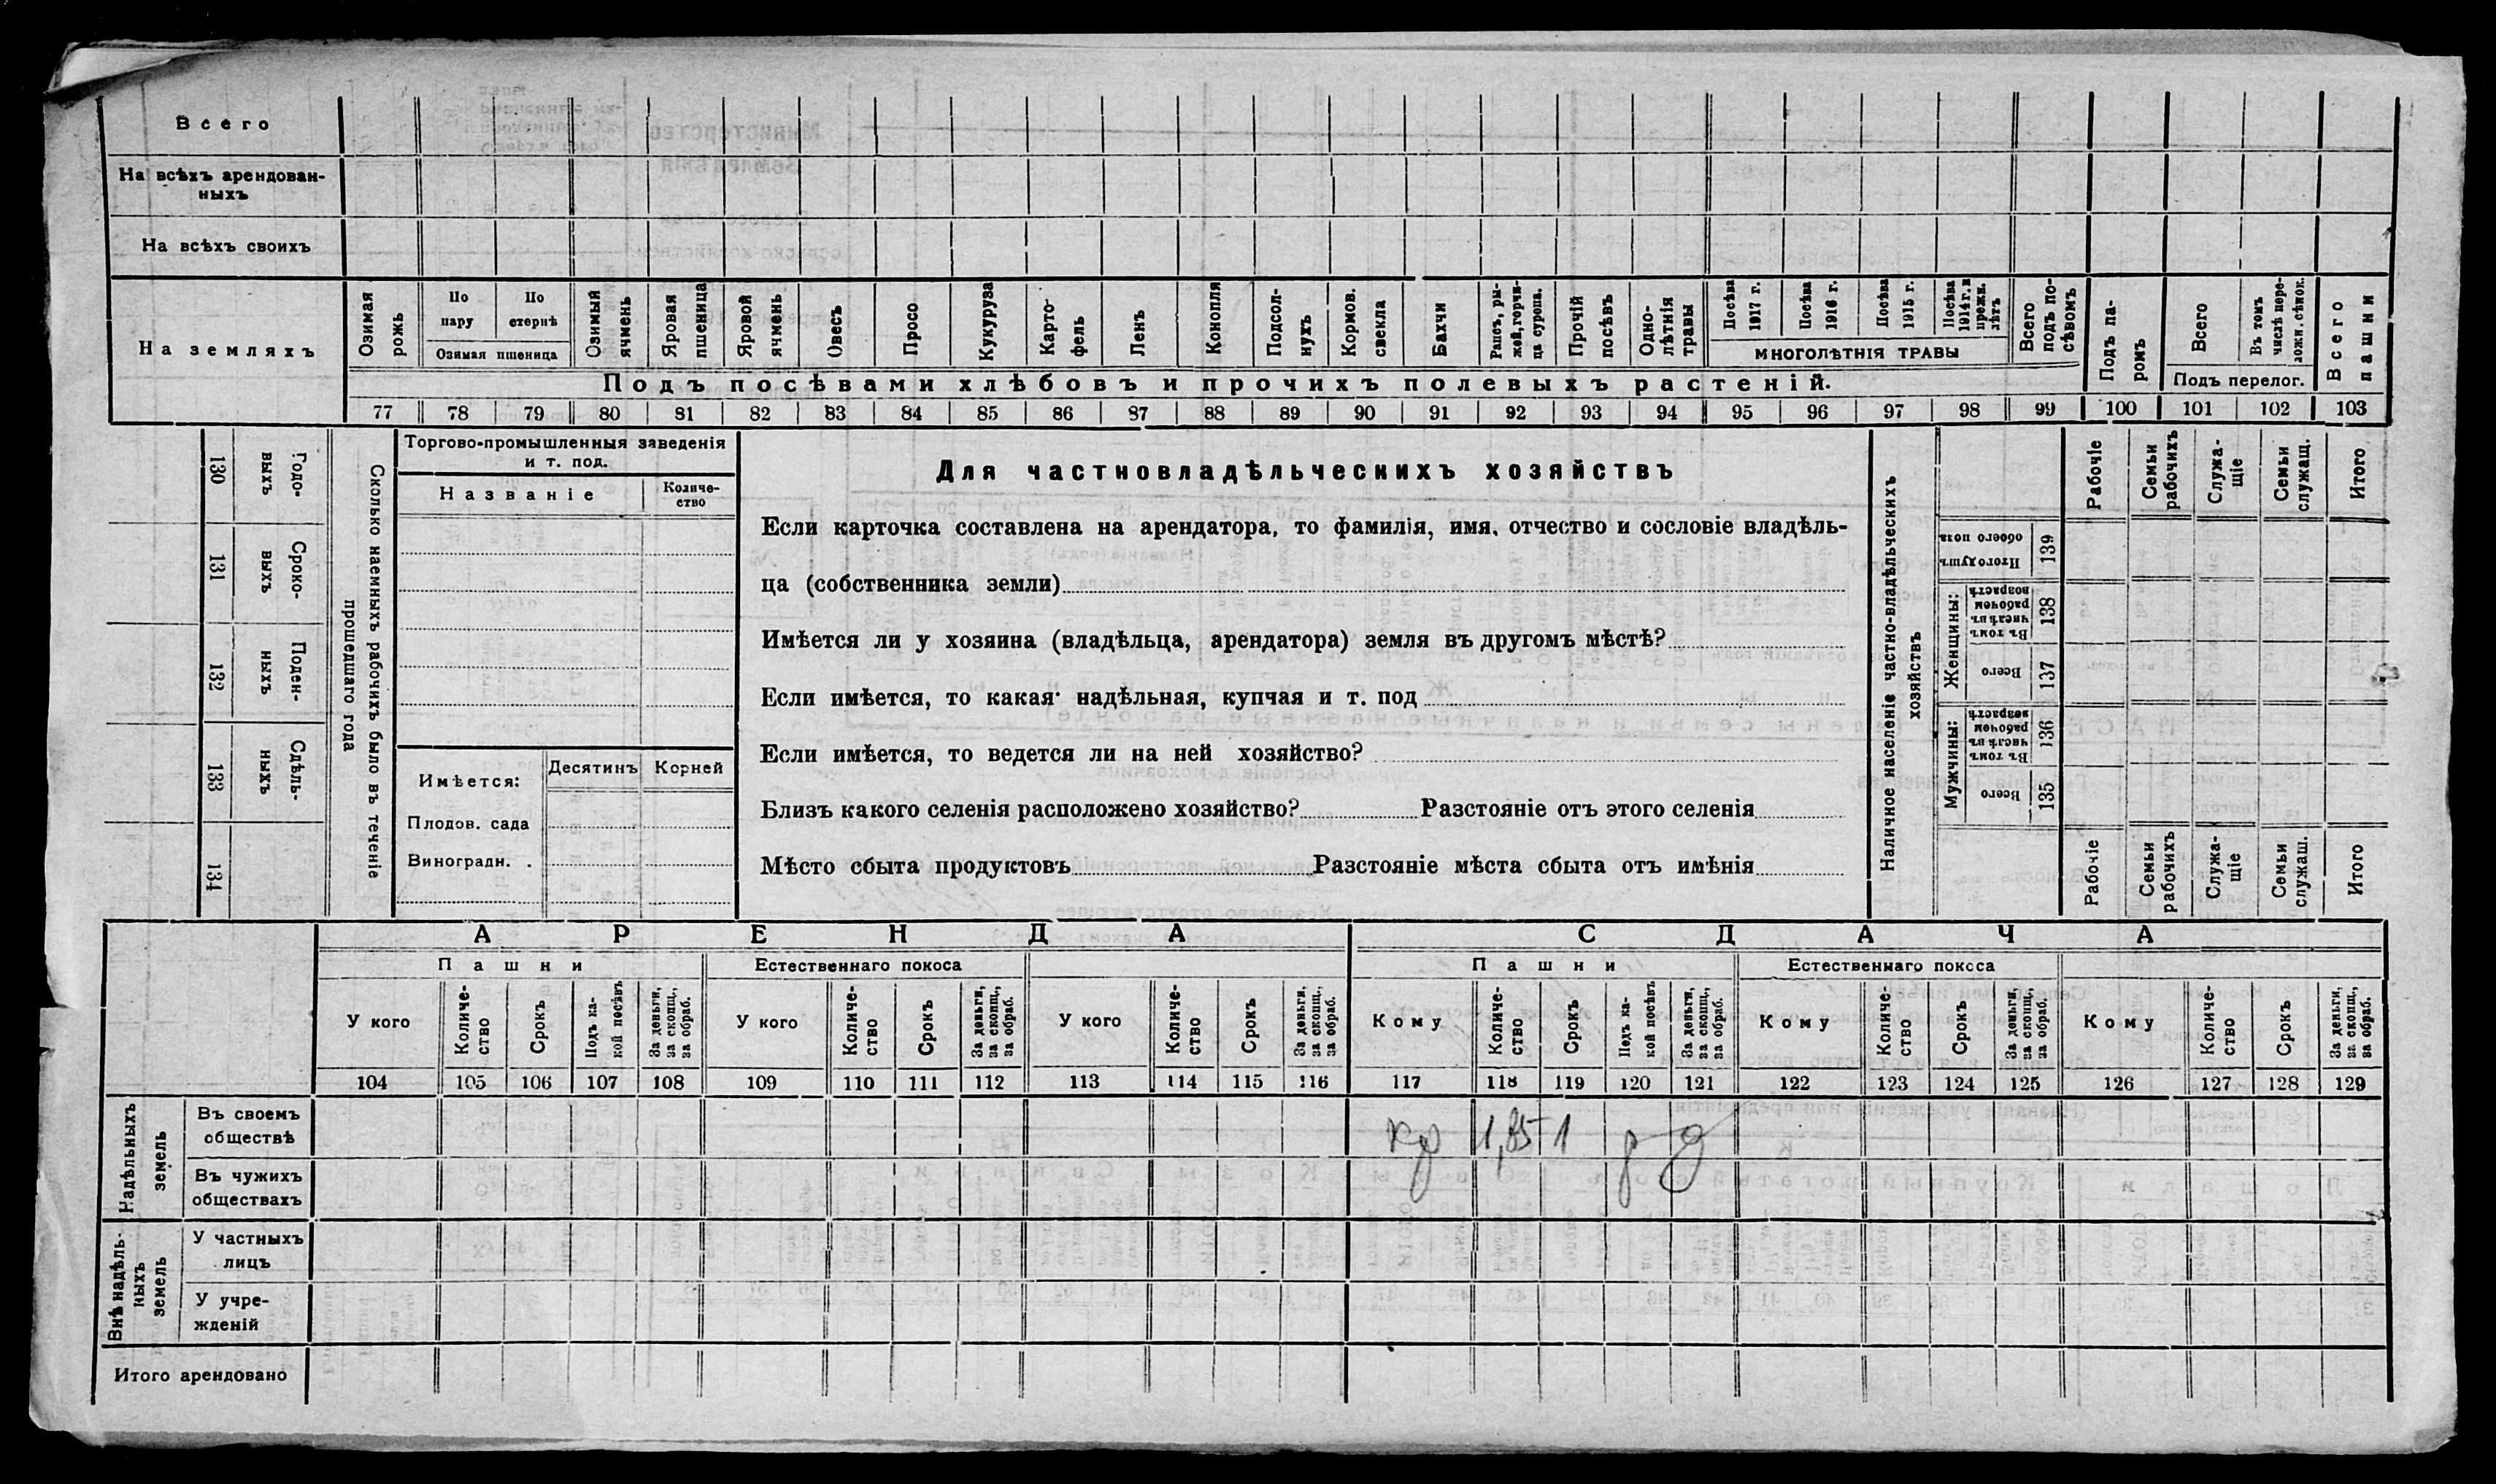 Всего
На всѣхъ арендован-
ныхъ
На всѣхъ своихъ
На земляхъ
Озимая рожь
По пару
По стернѣ
Озимая пшеница
Озимый ячмень
Яровая пшеница
Яровой ячмень
Овесъ
Просо
Кукуруза
Карто-
фель
Ленъ
Конопля
Подсол-
нухъ
Кормов. свекла
Бахчи
Рапсъ, ры-
жей, горчи-
ца сурепа.
Прочій посѣвъ
Одно-
лѣтнія травы
Посѣва 1917 г.
Посѣва 1916 г.
Посѣва 1915 г.
Посѣва 1914 г. и прежн. лѣтъ
МНОГОЛѢТНІЯ ТРАВЫ
Всего подъ по-
сѣвомъ
Подъ па-
ромъ
Всего
Въ томъ числѣ пере-
ложн. сѣнок.
Подъ перелог.
Всего пашни
Подъ посѣвами хлѣбовъ и прочихъ полевыхъ растеній.
77 78 79 80 81 82 83 84 85 86 87 88 89 90 91 92 93 94 95 96 97 98 99 100 101 102 103
130 Годо-
выхъ
131 Сроко-
выхъ
132 Поден-
ныхъ
133 Сдѣль-
ныхъ
134
Сколько наемныхъ рабочихъ было въ теченіе
прошедшаго года
Торгово-промышленныя заведенія
и т. под.
Названіе
Количе-
ство
Имѣется:
Десятинъ
Корней
Плодов. сада
Виноградн. .
Для частновладѣльческихъ хозяйствъ
Если карточка составлена на арендатора, то фамилія, имя, отчество и сословіе владѣль-
ца (собственника земли)
Имѣется ли у хозяина (владѣльца, арендатора) земля въ другомъ мѣстѣ?
Если имѣется, то какая· надѣльная, купчая и т. под
Если имѣется, то ведется ли на ней хозяйство?
Близъ какого селенія расположено хозяйство? Разстояніе отъ этого селенія
Мѣсто сбыта продуктовъ Разстояніе мѣста сбыта отъ имѣнія
Наличное населеніе частно-владѣльческихъ
хозяйствъ
Рабочіе
Семьи рабочихъ
Служа-
щіе
Семьи служащ.
Итого
Итого душъ обоего пола 139
Женщины:
Въ томъ числѣ въ рабочемъ возрастѣ 138
Всего 137
Мужчины:
Въ томъ числѣ въ рабочемъ возрастѣ 136
Всего 135
Рабочіе
Семьи рабочихъ
Служа-
щіе
Семьи служаш.
Итого
АРЕНДА
СДАЧА
Пашни
Естественнаго покоса
Пашни
Естественнаго покоса
У кого
Количе-
ство
Срокъ
Подъ ка-
кой посѣвъ
За деньги, за скопщ., за обраб.
У кого
Количе-
ство
Срокъ
За деньги, за скопщ., за обраб.
У кого
Количе-
ство
Срокъ
За деньги, за скопщ., за обраб.
Кому
Количе-
ство
Срокъ
Подъ ка-
кой посѣвъ
За деньги, за скопщ., за обраб.
Кому
Количе-
ство
Срокъ
За деньги, за скопщ., за обраб.
Кому
Количе-
ство
Срокъ
За деньги, за скопщ., за обраб.
104 105 106 107 108 109 110 111 112 113 114 115 116 117 118 119 120 121 122 123 124 125 126 127 128 129
Надѣльныхъ земель
Въ своемъ
обществѣ
кр 1,85 1 р д
Въ чужихъ
обществахъ
Внѣ надѣль-
ныхъ земель
У частныхъ
лицъ
У учре-
жденій
Итого арендовано